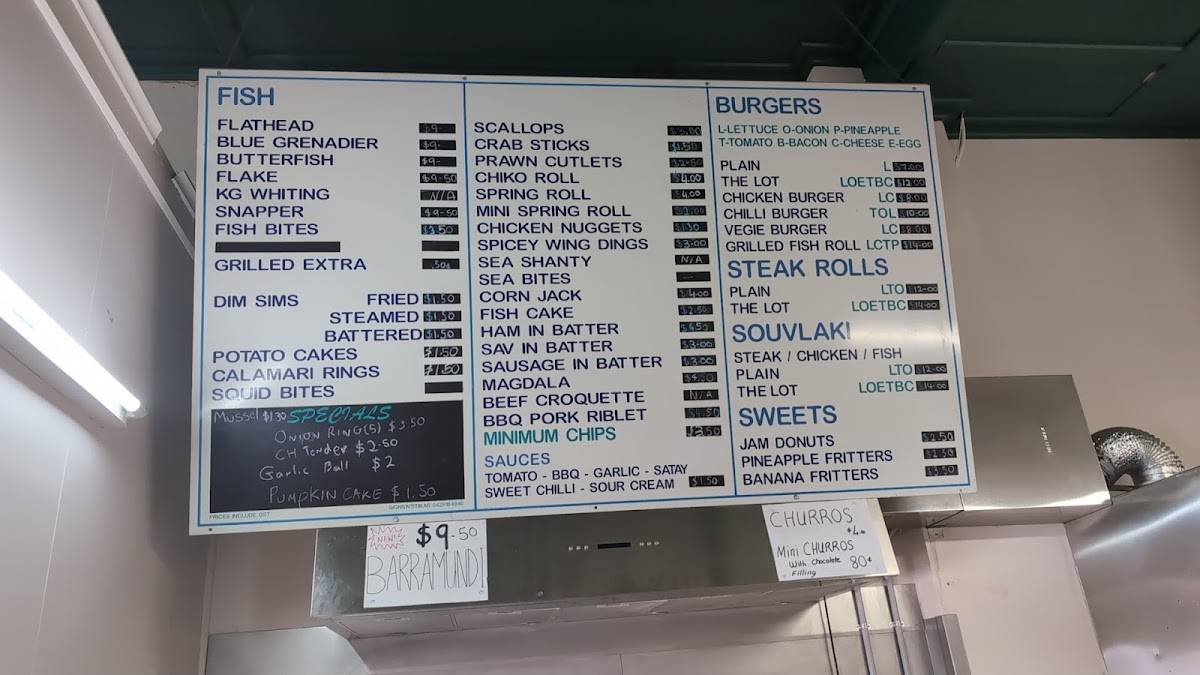 FISH
FLATHEAD $9-
BLUE GRENADIER $9-
BUTTERFISH $9-
FLAKE $9-50
KG WHITING N/A
SNAPPER $9-50
FISH BITES
GRILLED EXTRA .50¢
DIM SIMS FRIED $1.50
STEAMED $1.50
BATTERED $1.50
POTATO CAKES $1.50
CALAMARI RINGS $1.50
SQUID BITES
Mussel $1.30 SPECIALS
ONION RING(5) $3.50
CH Tender $2.50
Garlic Ball $2
PUMPKIN CAKE $1.50
PRICES INCLUDE GST
SCALLOPS
CRAB STICKS $1.50
PRAWN CUTLETS $2-50
CHIKO ROLL $4.00
SPRING ROLL $4.00
MINI SPRING ROLL
CHICKEN NUGGETS
SPICEY WING DINGS $3-00
SEA SHANTY N/A
SEA BITES —
CORN JACK $4-00
FISH CAKE $2-50
HAM IN BATTER
SAV IN BATTER $3-00
SAUSAGE IN BATTER $3.00
MAGDALA
BEEF CROQUETTE N/A
BBQ PORK RIBLET
MINIMUM CHIPS
SAUCES
TOMATO - BBQ - GARLIC - SATAY
SWEET CHILLI - SOUR CREAM $1.50
BURGERS
L-LETTUCE O-ONION P-PINEAPPLE
T-TOMATO B-BACON C-CHEESE E-EGG
PLAIN L $7.00
THE LOT LOETBC $12.00
CHICKEN BURGER LC $8.00
CHILLI BURGER TOL $10-00
VEGIE BURGER LC $8.00
GRILLED FISH ROLL LCTP $14-00
STEAK ROLLS
PLAIN LTO $12-00
THE LOT LOETBC $14-00
SOUVLAKI
STEAK / CHICKEN / FISH
PLAIN LTO $12-00
THE LOT LOETBC $14-00
SWEETS
JAM DONUTS $2.50
PINEAPPLE FRITTERS $2.50
BANANA FRITTERS $3.50
NEW! $9.50
BARRAMUNDI
CHURROS
$4
Mini CHURROS
With Chocolate 80¢
Filling